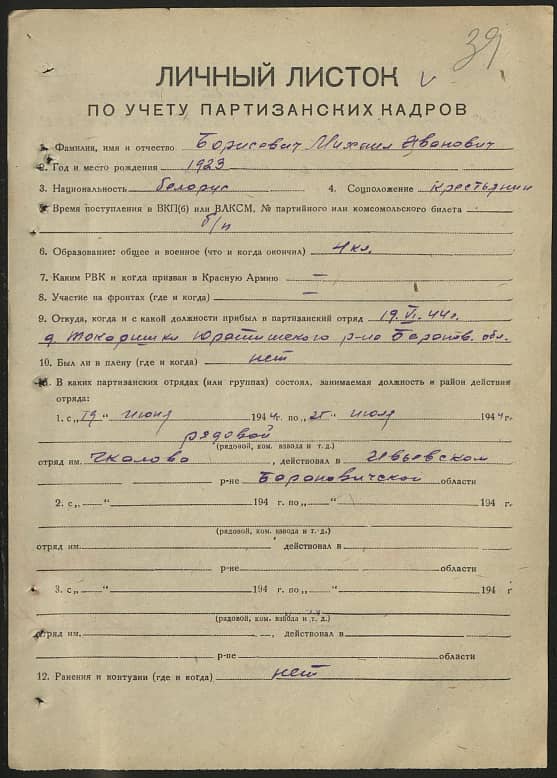 39
ЛИЧНЫЙ ЛИСТОК v
ПО УЧЕТУ ПАРТИЗАНСКИХ КАДРОВ
1. Фамилия, имя и отчество Борисевич Михаил Иванович
2. Год и место рождения 1923
3. Национальность белорус 4. Соцположение крестьянин
5. Время поступления в ВКП(б) или ВЛКСМ, № партийного или комсомольского билета
б/п
6. Образование: общее и военное (что и когда окончил) 4 кл.
7. Каким РВК и когда призван в Красную Армию —
8. Участие на фронтах (где и когда) —
9. Откуда, когда и с какой должности прибыл в партизанский отряд 19.VI.44г.
д. Токаришки Юратишского р-на Баранов. обл.
10. Был ли в плену (где и когда) нет
11. В каких партизанских отрядах (или группах) состоял, занимаемая должность и район действия
отряда:
1. с „19" июня 1944г. по „25" июля 1944г.
рядовой
(рядовой, ком. взвода и т. д.)
отряд им. Чкалова, действовал в Ивьевском
р-не Барановичской области
2. с „—" 194 г. по „—" 194 г.
(рядовой, ком. взвода и т. д.)
отряд им. действовал в
р-не области
3. с „—" 194 г. по „—" 194 г
(рядовой, ком. взвода и т. д.)
отряд им. , действовал в
р-не области
12. Ранения и контузии (где и когда) нет